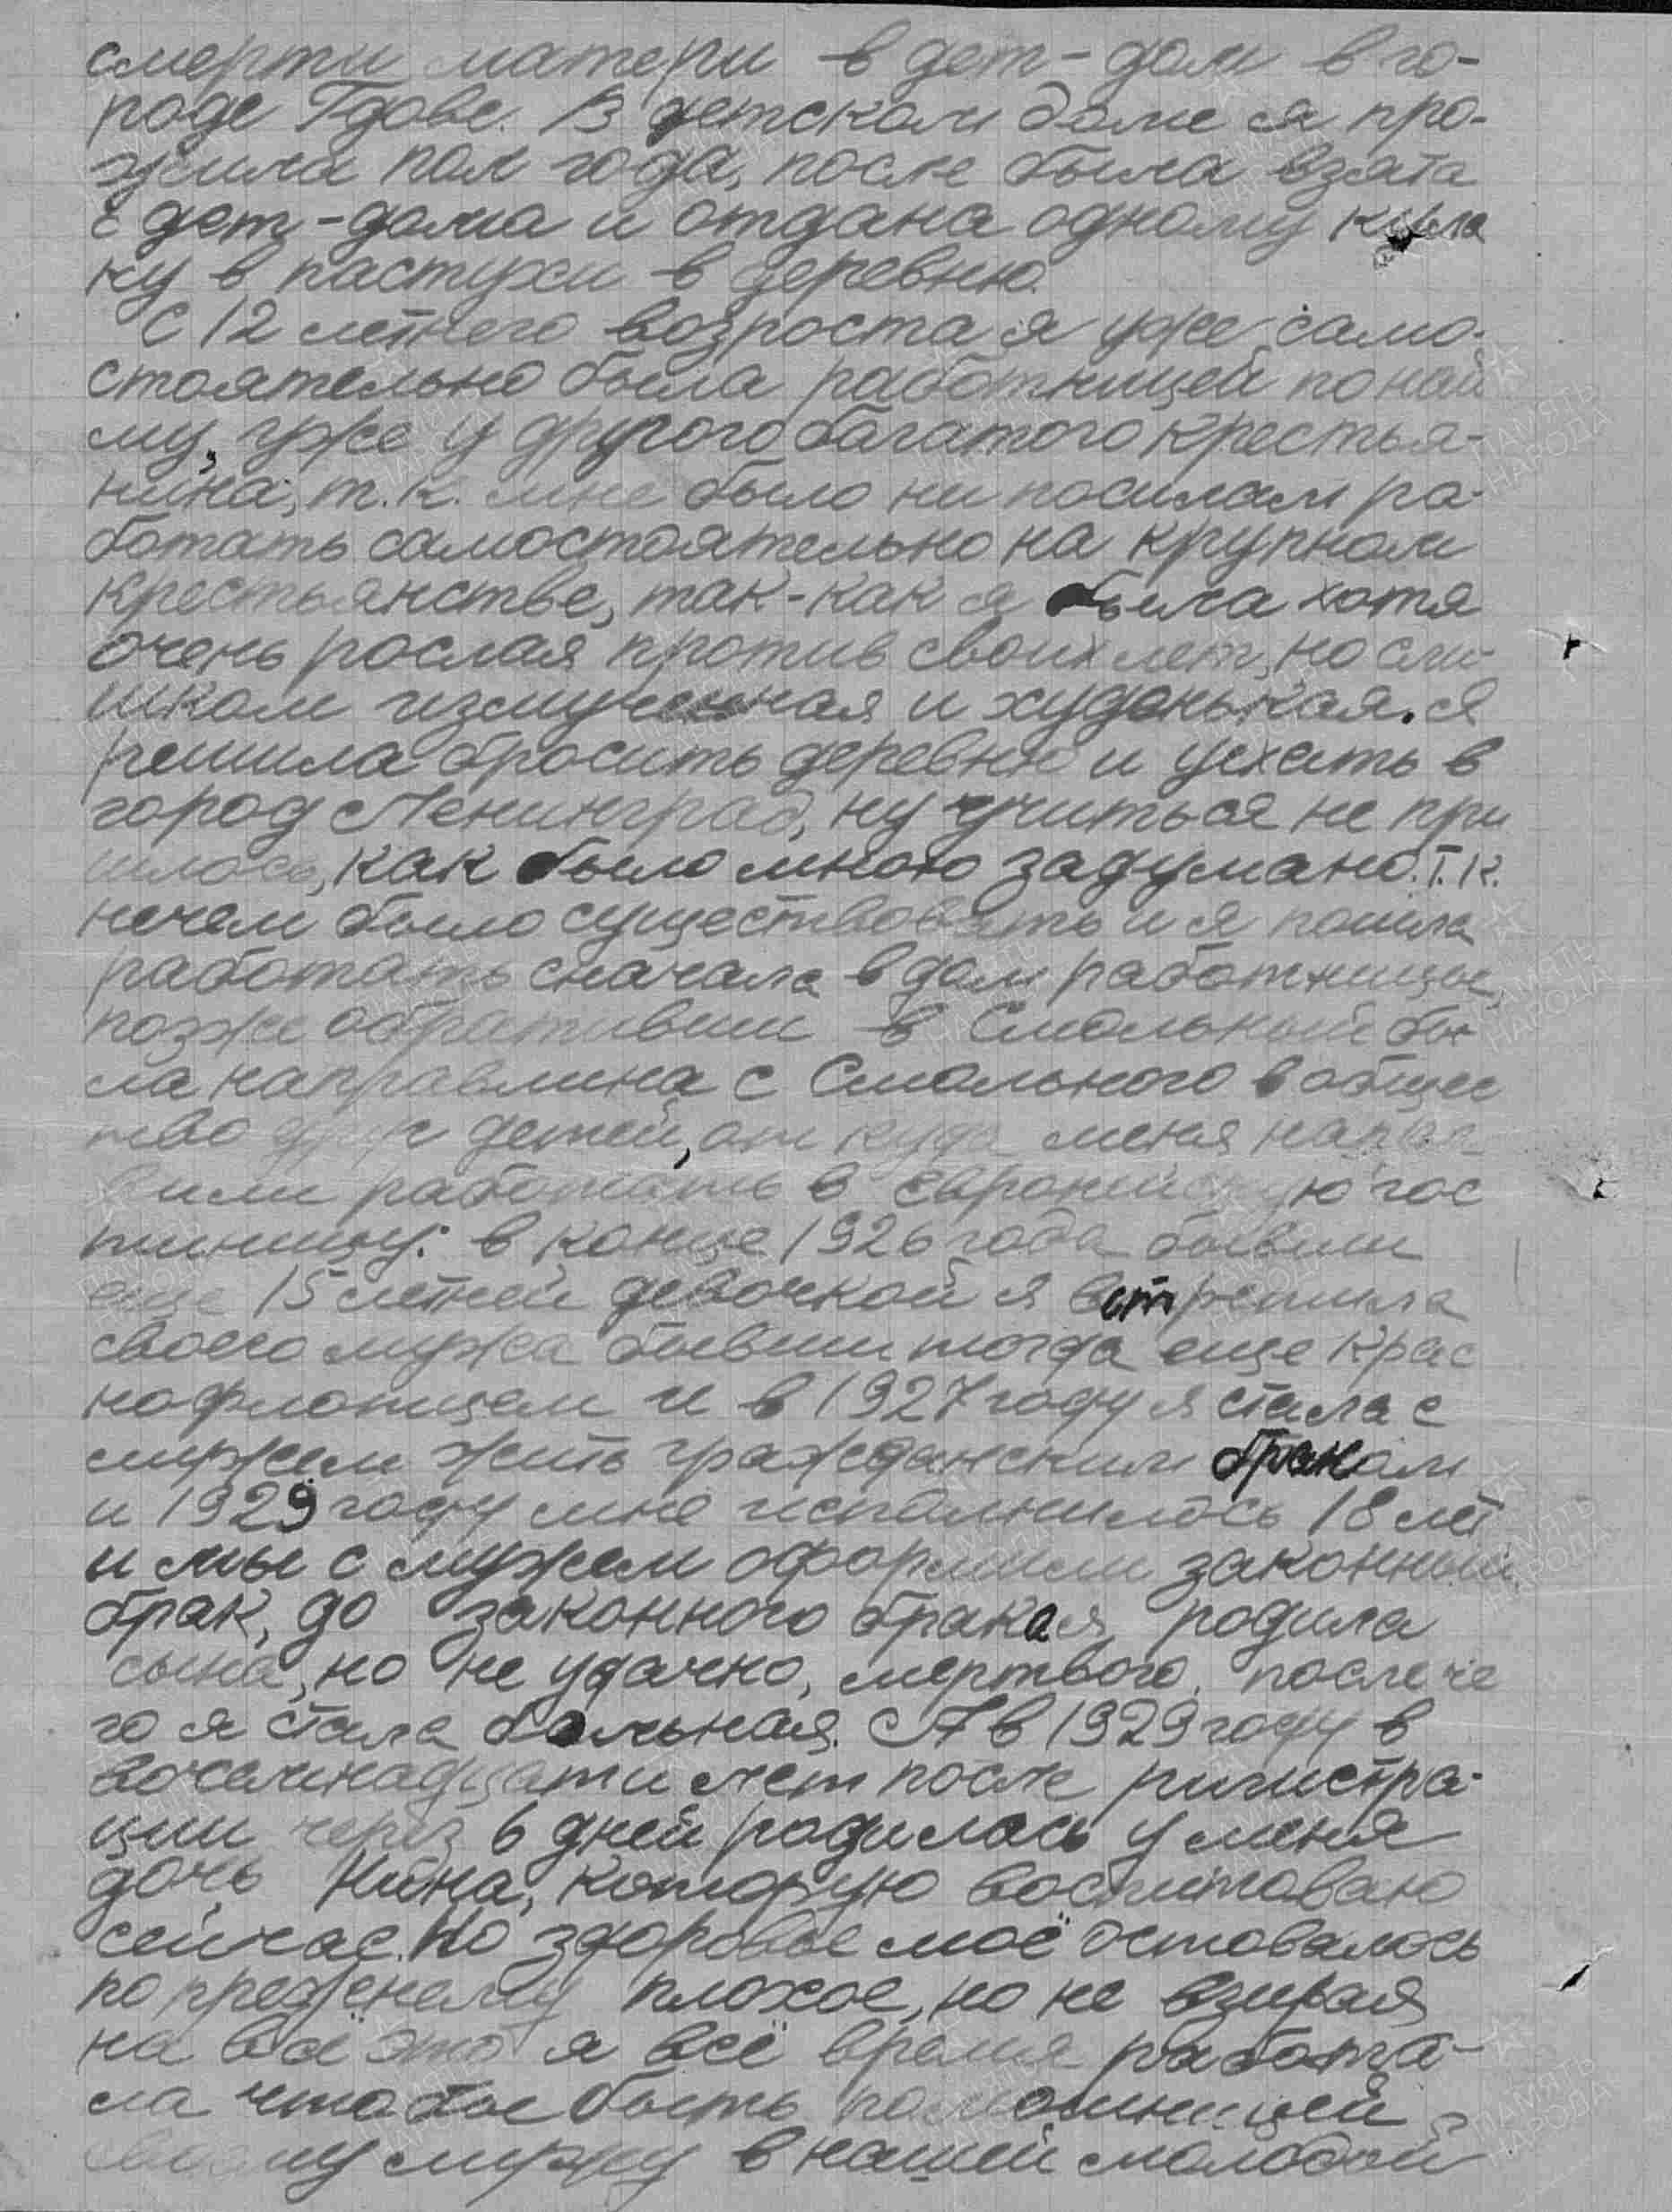 смерти матери в дет-дом в го-
роде Гдове. В детском доме я про-
жила пол года, после была взята
с дет-дома и отдана одному кула
ку в пастухи в деревню.
С 12 летнего возроста я уже само-
стоятельно была работницей по най
му, уже у другого богатого крестья-
нина, т.к. мне было ни посилам ра-
ботать самостоятельно на крупном
крестьянстве, так-как я была хотя
очень рослая против своих лет, но сли-
шком измученная и худенькая. Я
решила бросить деревню и уехать в
город Ленинград, ну учиться не при
шлось, как было мною задумано. Т.К.
нечем было существовать и я пошла
работать сначала в дом работницы,
позже обративши в Смольный бы
ла направлина с Смольного в общес
тво друг детей, от куда меня напра
вили работать в европейскую гос
тиницу: в конце 1926 года бывши
еще 15 летней девочкой я встретила
своего мужа бывши тогда еще крас
нофлотцем и в 1927 году я стала с
мужем жить гражданским браком
и 1929 году мне исполнилось 18 лет
и мы с мужем оформили законный
брак, до законного брака я родила
сына, но не удачно, мертвого, после че
го я стала больная. А в 1929 году в
восемнадцати лет после ригистра-
ции через 6 дней родилась у меня
дочь Нина, которую воспитоваю
сейчас. Но здоровье моё оставалось
по прежнему плохое, но не взирая
на всё это я всё время работа-
ла что бы быть помошницей
своему мужу в нашей молодой